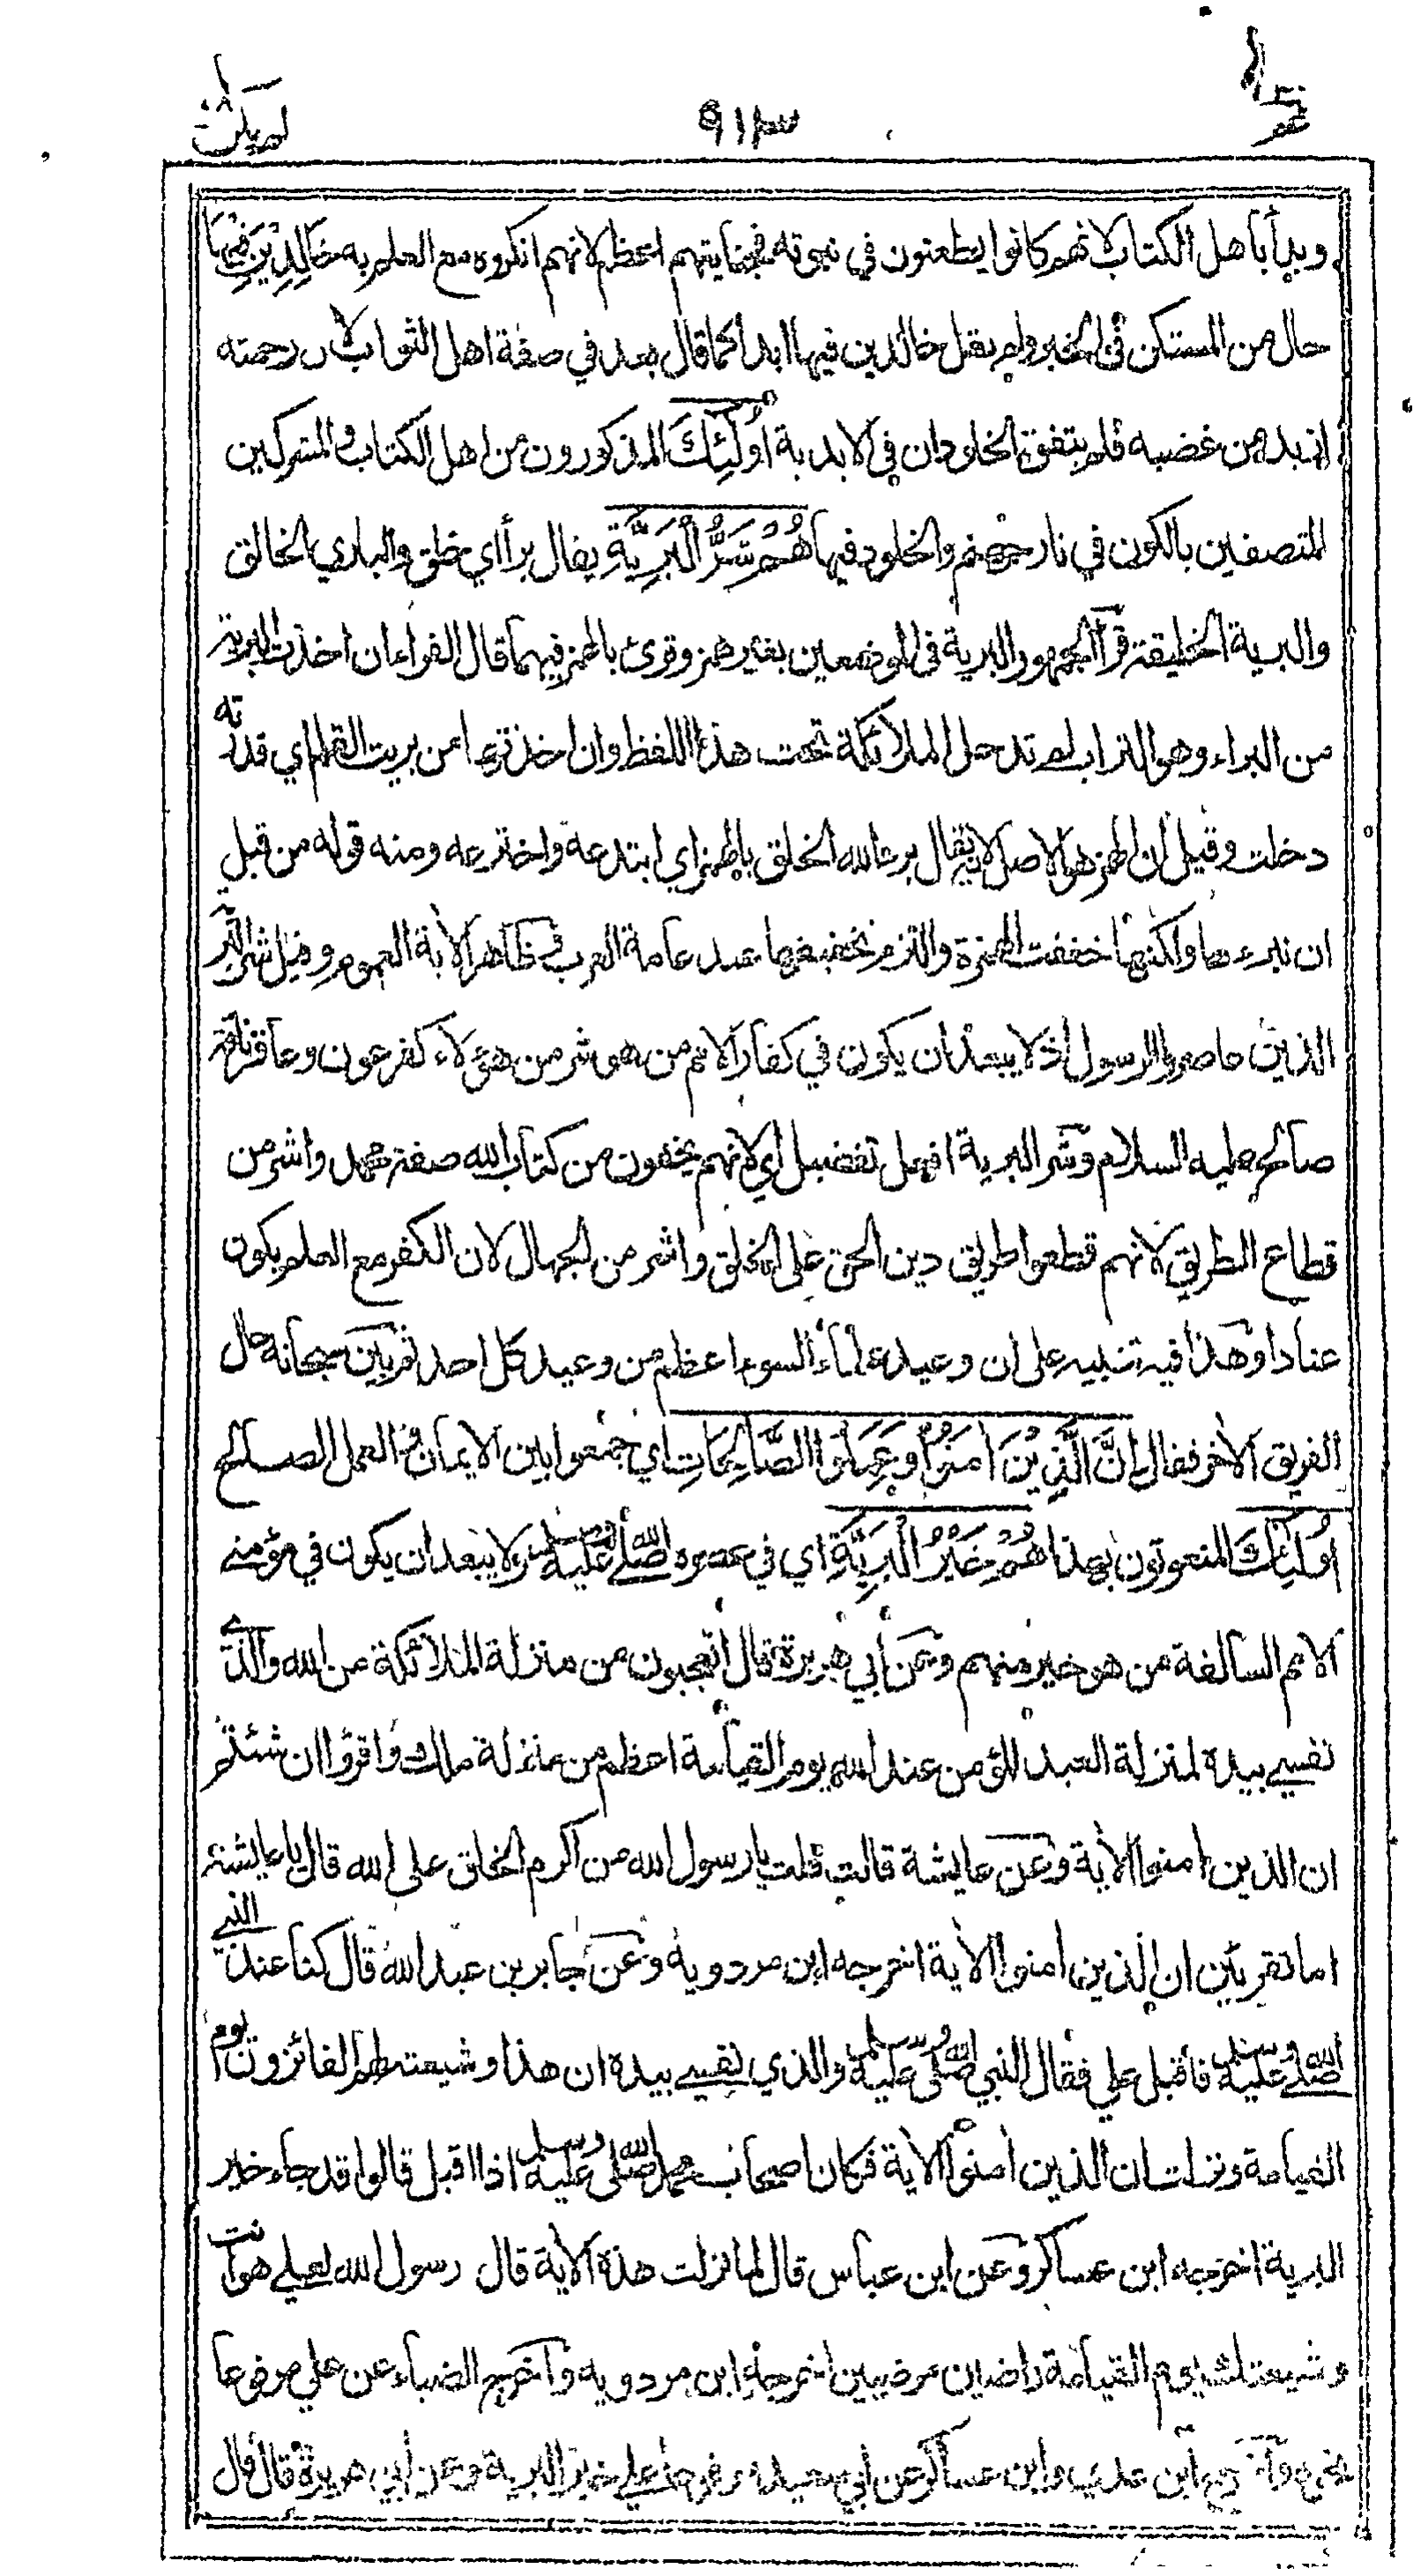 عم ٣٠
٤١٣
لم يكن ٩٨
وبدأ بأهل الكتاب لانهم كانوا يطعنون في نبوته فجنايتهم اعظم لانهم انكروه مع العلم به خَالِدِيْنَ فِيْهَا
حال من المستكن في الخبر ولم يقل خالدين فيها ابدا كما قال بعد في صفة اهل الثواب لان رحمته
ازيد من غضبه فلم يتفق الخلودان في الابدية أُولٰئِكَ المذكورون من اهل الكتاب والمشركين
المتصفين بالكون في نار جهنم والخلود فيها هُمْ شَرُّ الْبَرِيَّةِ يقال برأ أي خلق والباري الخالق
والبرية الخليقة قرأ الجمهور البرية في الموضعين بغير همز وقرئ بالهمز فيهما قال الفراء ان اخذت البرية
من البراء وهو التراب لم تدخل الملائكة تحت هذا اللفظ وان اخذتها من بريت القلم اي قدرته
دخلت وقيل ان الهمز هو الاصل لانه يقال برء الله الخلق بالهمز اي ابتدعه واخترعه ومنه قوله من قبل
ان نبرءها ولكنها خففت الهمزة والتزم تخفيفها عند عامة العرب ظاهر الأية العموم وقيل شر البرية
الذين عاصروا الرسول اذ لا يبعد ان يكون في كفار الامم من هو شر من هؤلاء كفرعون وعاقر ناقة
صالح عليه السلام وشر البرية افعل تفضيل اي لانهم يخفون من كتاب الله صفة محمد واشر من
قطاع الطريق لانهم قطعوا طريق دين الحق على الخلق واشر من الجهال لان الكفر مع العلم يكون
عنادا وهذا فيه تنبيه على ان وعيد علماء السوء اعظم من وعيد كل احد ثم بين سبحانه حال
الفريق الأخر فقال إِنَّ الَّذِيْنَ اٰمَنُوْا وَعَمِلُوا الصَّالِحَاتِ اي جمعوا بين الايمان والعمل الصالح
أُولٰئِكَ المنعوتون بهذا هُمْ خَيْرُ الْبَرِيَّةِ اي في عصره صلى الله عليه وسلم ولا يبعد ان يكون في مؤمني
الامم السالفة من هو خير منهم وعن أبي هريرة قال أتعجبون من منزلة الملائكة من الله والذي
نفسي بيده لمنزلة العبد المؤمن عند الله يوم القيامة اعظم من منزلة ملك واقرؤا ان شئتم
ان الذين امنوا الأية وعن عايشة قالت قلت يا رسول الله من اكرم الخلق على الله قال يا عايشة
اما تقرئين ان الذين امنوا الأية اخرجه ابن مردويه وعن جابر بن عبد الله قال كنا عند النبي
صلى الله عليه وسلم فأقبل علي فقال النبي صلى الله عليه وسلم والذي نفسي بيده ان هذا وشيعته لهم الفائزون يوم
القيامة ونزلت ان الذين امنوا الأية فكان اصحاب محمد صلى الله عليه وسلم اذا اقبل قالوا قد جاء خير
البرية اخرجه ابن عساكر وعن ابن عباس قال لما نزلت هذه الأية قال رسول الله لعلي هو انت
وشيعتك يوم القيامة راضين مرضيين اخرجه ابن مردويه واخرج الضياء عن علي مرفوعا
نحوه واخرج ابن عدي وابن عساكر عن أبي سعيد مرفوعا علي خير البرية وعن أبي هريرة قال قال